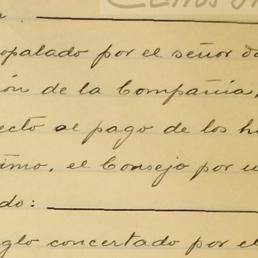 opalado por el señor
ón de la Compañía,
ecto al pago de los
imo, el Consejo por
do:
glo concertado por el